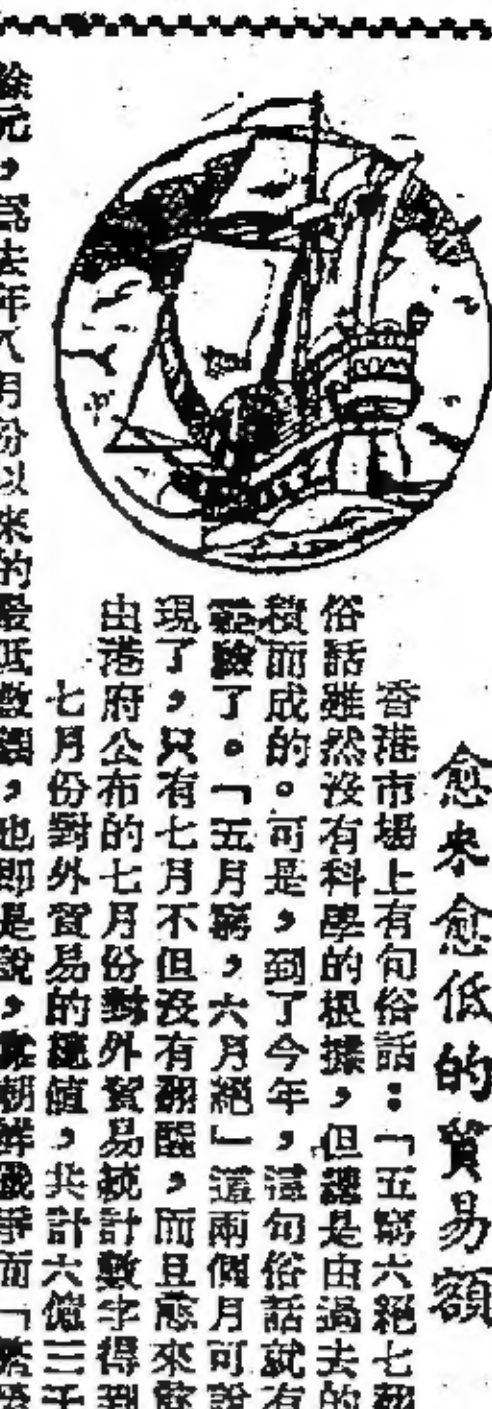 愈來愈低的貿易額
香港市場上有句俗話：「五窮六絕七翻
俗話雖然沒有科學的根據，但總是由過去的
積而成的。可是，到了今年，這句俗話就有
靈驗了。「五月窮，六月絕」這兩個月可說
現了，只有七月不但沒有翻醒，而且愈來愈
由港府公布的七月份對外貿易統計數字得到
七月份對外貿易的總值，共計六億三千
餘元，爲去年八月份以來的最低數額，也即是說，朝鮮戰爭而「